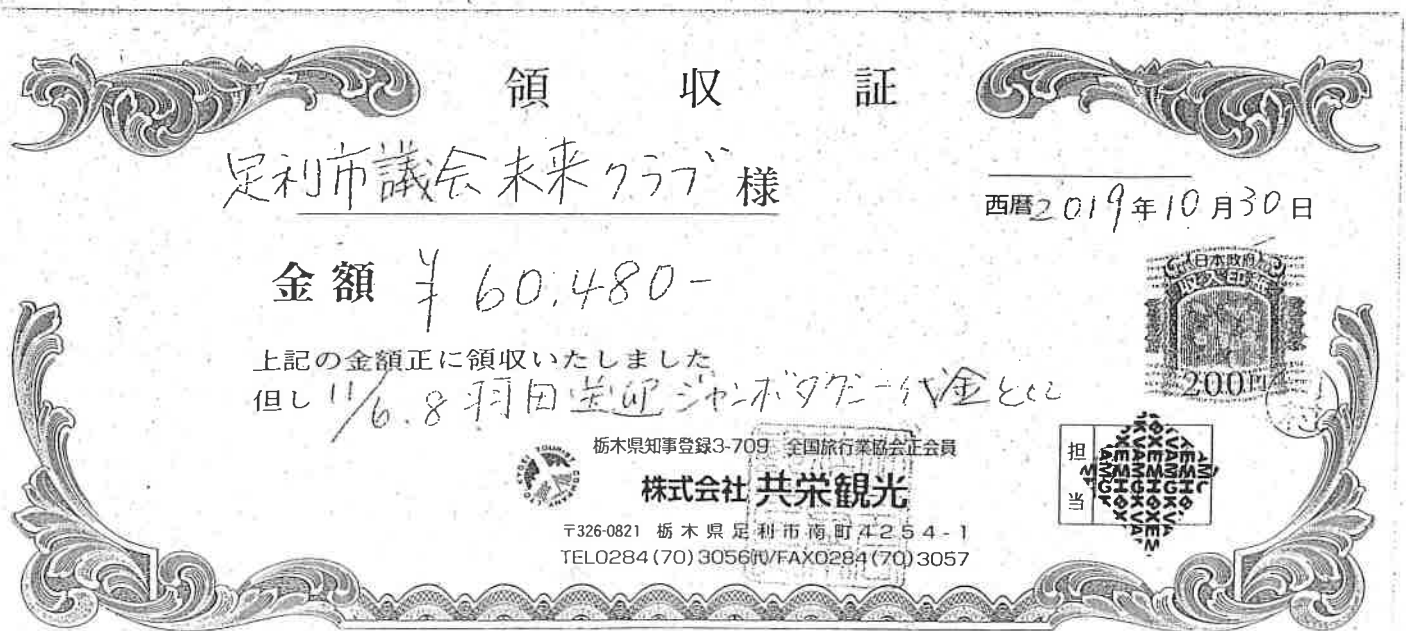 領収証
足利市議会未来クラブ 様
西暦2019年10月30日
金額 ¥60,480-
上記の金額正に領収いたしました
但し 11/6.8 羽田送迎ジャンボタクシー代金として
日本政府
収入印紙
200円
栃木県知事登録3-709 全国旅行業協会正会員
株式会社 共栄観光
〒326-0821 栃木県足利市南町4254-1
TEL0284(70)3056㈹/FAX0284(70)3057
担当